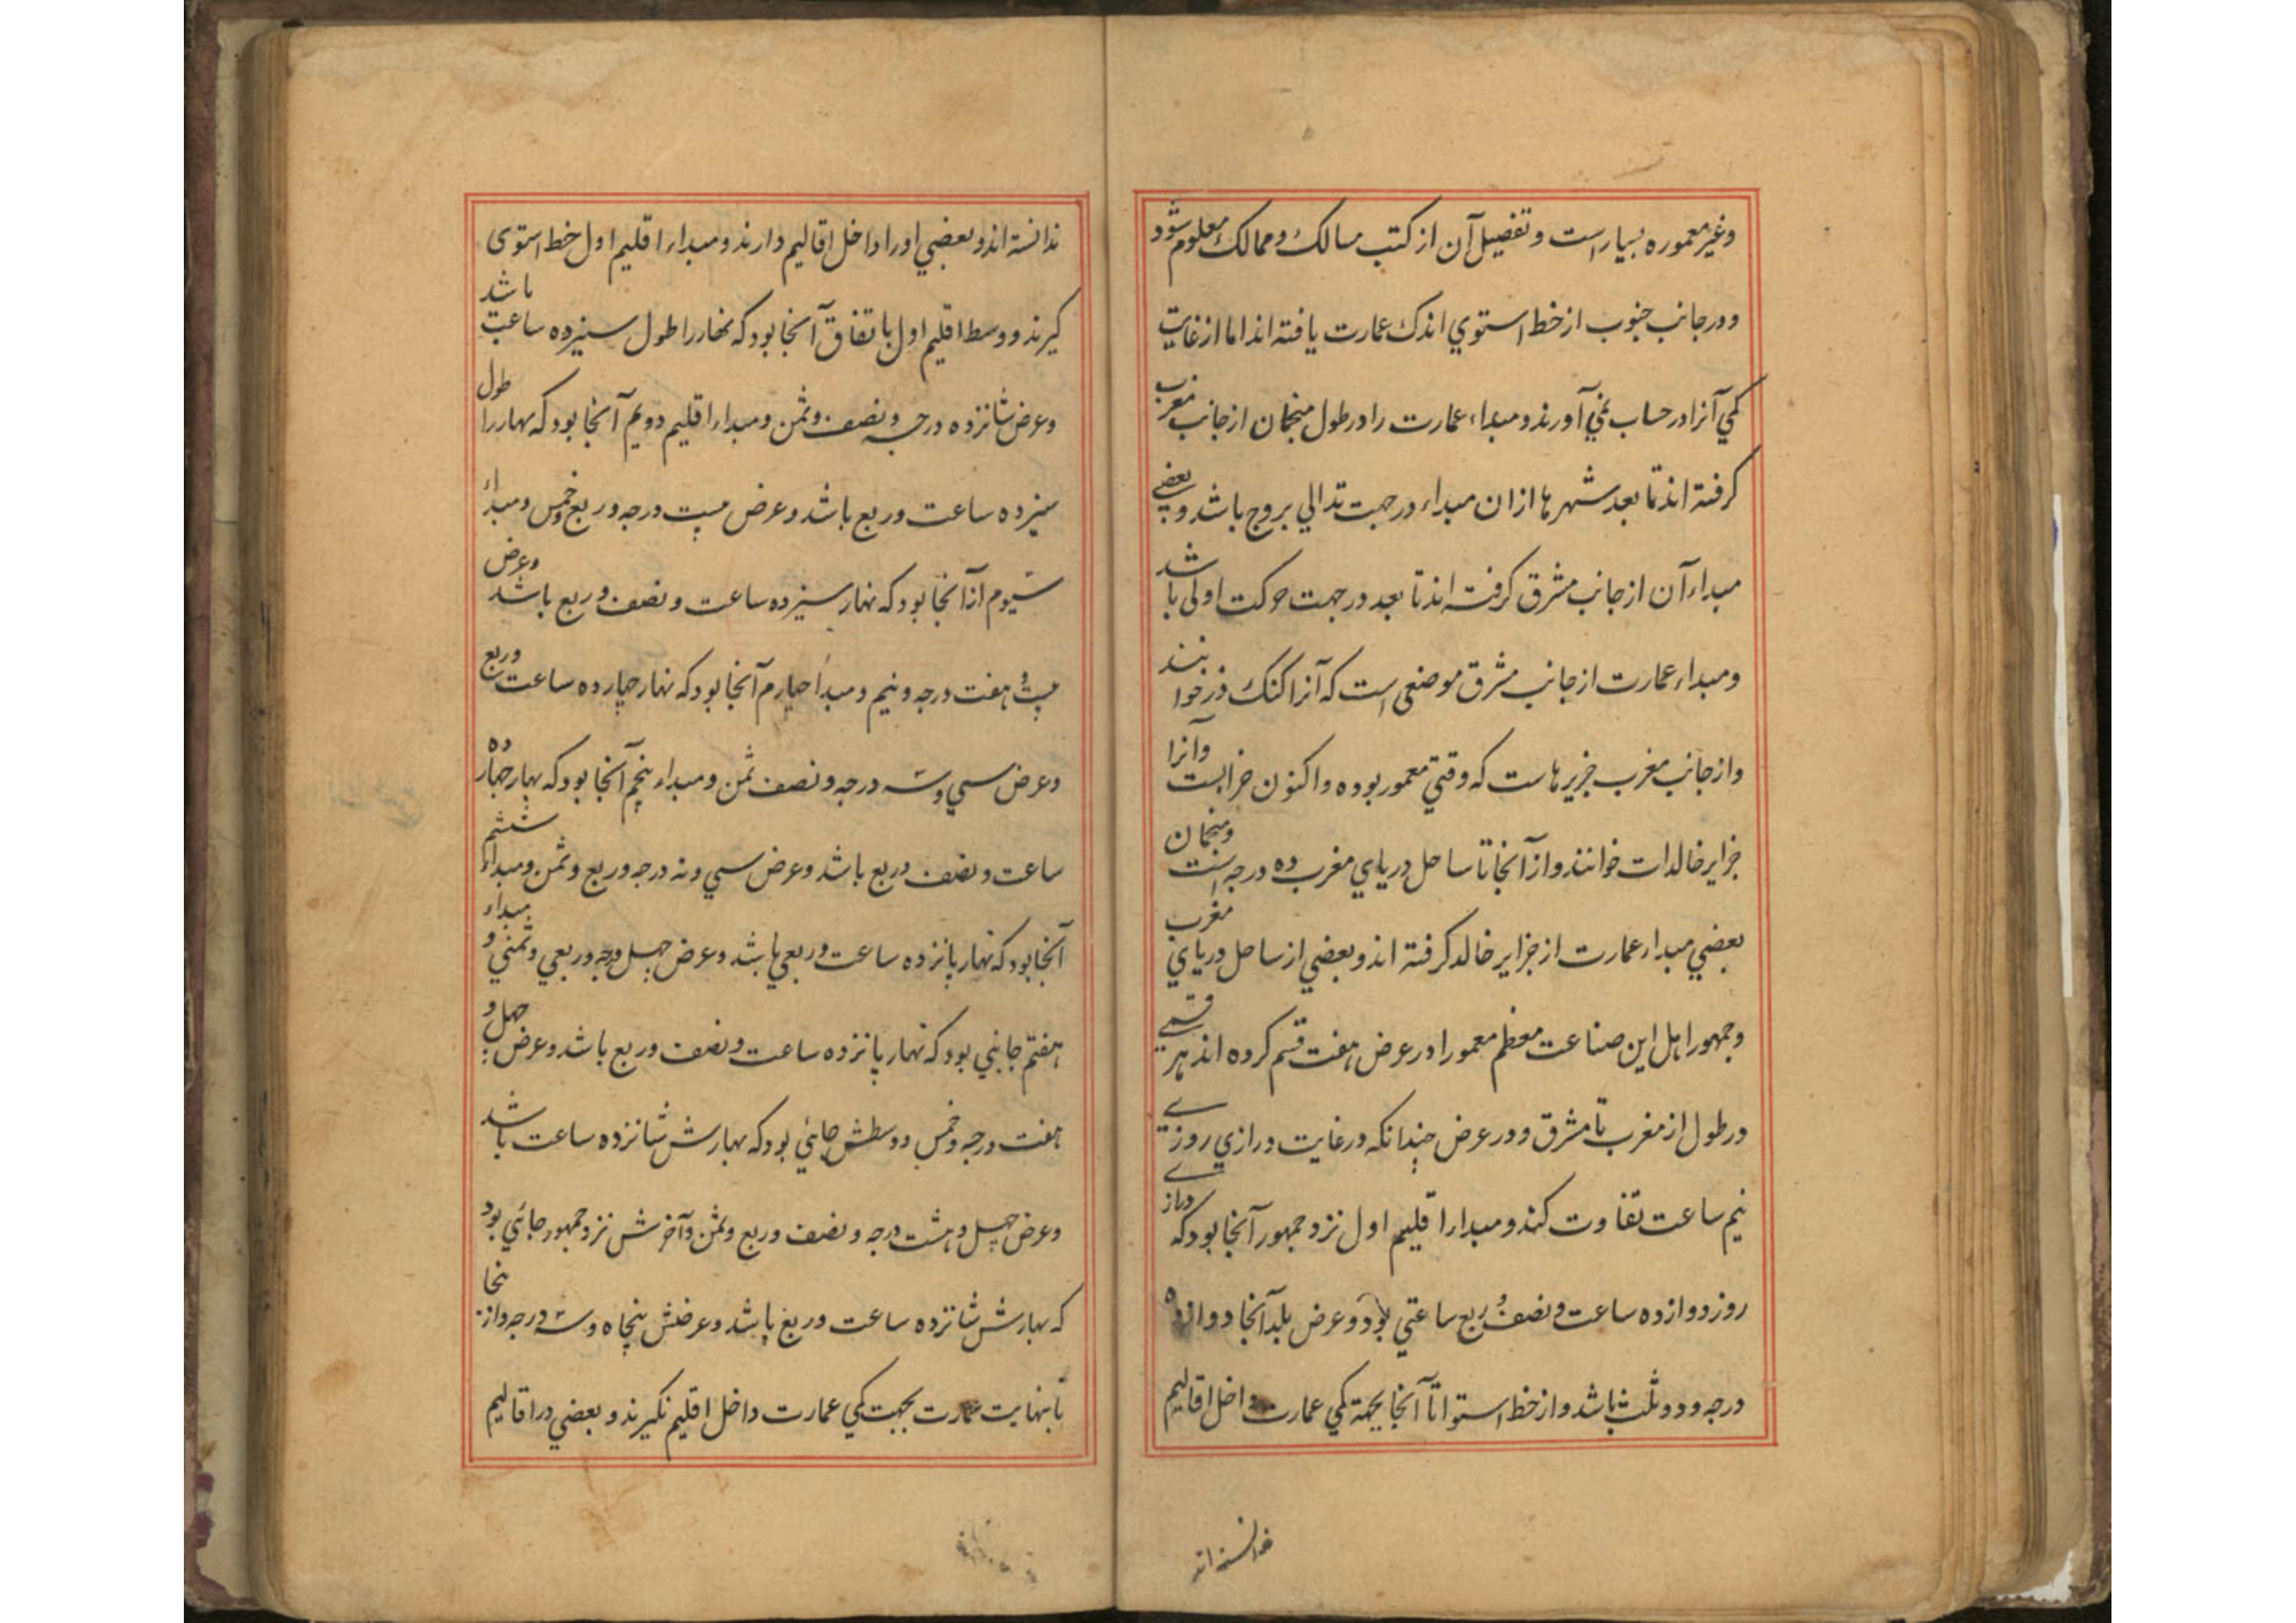 وغیر معموره بسیار است و تفصیل آن از کتب مسالک و ممالک معلوم شود
و در جانب جنوب از خط استوي اندک عمارت یافته اند اما از غایت
کمي آنرا در حساب نمي آورند و مبداء عمارت را در طول منجمان از جانب مغرب
گرفته اند تا بعد شهرها ازان مبداء در جهت توالي بروج باشد و بعضي
مبداء آن از جانب مشرق گرفته اند تا بعد در جهت حرکت اولی باشد
و مبداء عمارت از جانب مشرق موضعی است که آنرا کنک دز خوانند
و از جانب مغرب جزیرهاست که وقتي معمور بوده و اکنون خرابست و آنرا
جزایر خالدات خوانند و از آنجا تا ساحل دریاي مغرب ده درجه است و منجمان
بعضي مبداء عمارت از جزایر خالد گرفته اند و بعضي از ساحل دریاي مغرب
و جمهور اهل این صناعت معظم معمور را در عرض هفت قسم کرده اند هر قسمي
در طول از مغرب تا مشرق و در عرض چندانکه در غایت درازي روز
نیم ساعت تفاوت کند و مبداء اقلیم اول نزد جمهور آنجا بود که دراز
روز دوازده ساعت و نصف و ربع ساعتي بود و عرض بلد آنجا دوازده
درجه و دو ثلث باشد و از خط استوا تا آنجا بجهة کمي عمارت داخل اقالیم
ندانسته اند
ندانسته اند و بعضي اورا داخل اقالیم دارند و مبداء اقلیم اول خط استوی
گیرند و وسط اقلیم اول باتفاق آنجا بود که نهار را طول سیزده ساعت باشد
و عرض شانزده درجه و نصف و ثمن و مبداء اقلیم دویم آنجا بود که نهار را طول
سیزده ساعت و ربع باشد و عرض بیست درجه و ربع و خمس و مبداء
سیوم ازآنجا بود که نهار سیزده ساعت و نصف و ربع باشد و عرض
بیست و هفت درجه و نیم و مبدأ چهارم آنجا بود که نهار چهارده ساعت و ربع
و عرض سي و سه درجه و نصف ثمن و مبداء پنجم آنجا بود که نهار چهارده
ساعت و نصف و ربع باشد و عرض سي و نه درجه و ربع و ثمن و مبداء ششم
آنجا بود که نهار پانزده ساعت و ربعي باشد و عرض چهل و درجه و ربعي و ثمني و مبداء
هفتم جایي بود که نهار پانزده ساعت و نصف و ربع باشد و عرض چهل و
هفت درجه و خمس و وسطش جائي بود که نهارش شانزده ساعت باشد
و عرض چهل و هشت درجه و نصف و ربع و ثمن و آخرش نزد جمهور جائي بود
که نهارش شانزده ساعت و ربع باشد و عرضش پنجاه و سه درجه و از ینجا
تا نهایت عمارت بجهت کمي عمارت داخل اقلیم نگیرند و بعضي در اقالیم